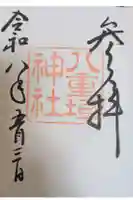 参拝
八重垣
神社
令和八年五月三日